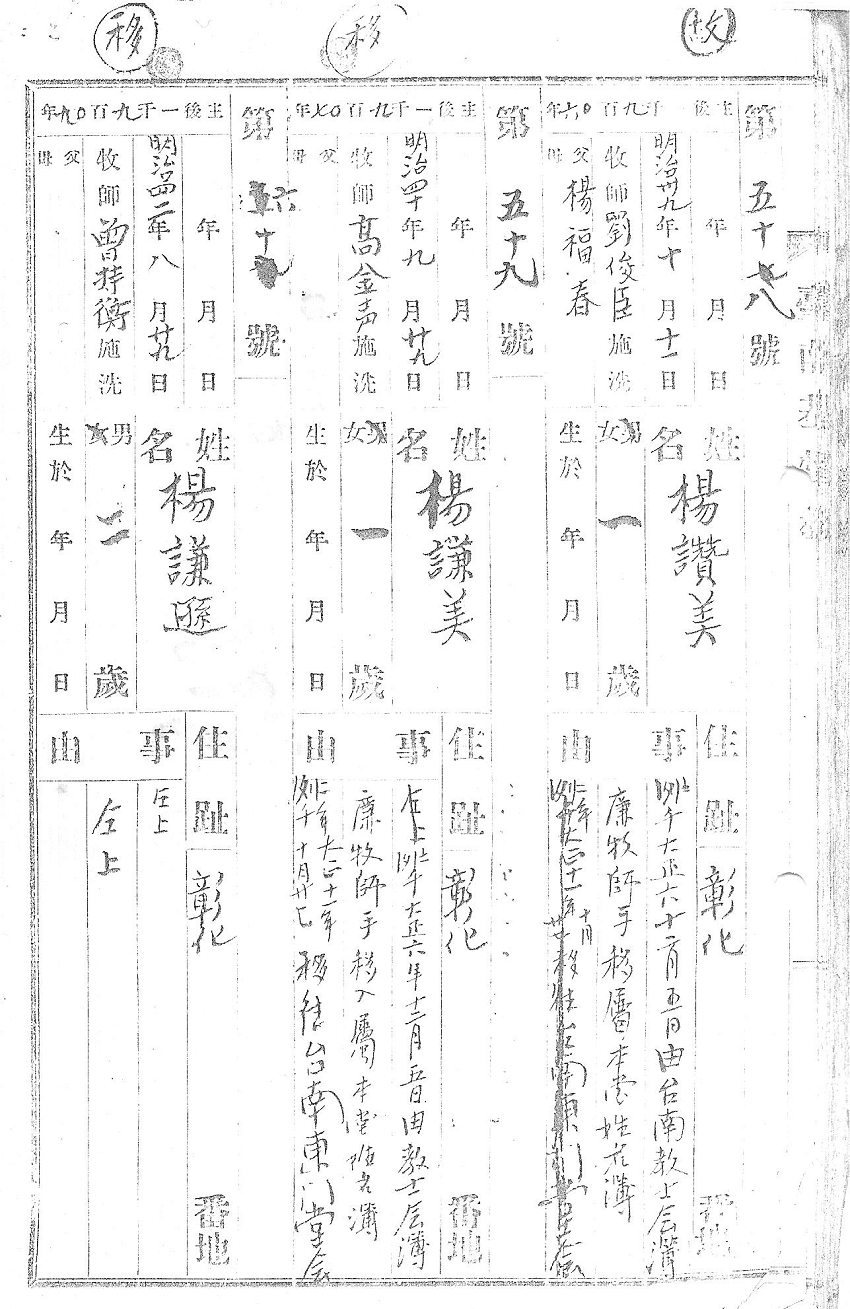 故
第五十八號
主後一千九百六〇年 年 月 日
明治卅九年十月十一日
牧師劉俊臣施洗
父 楊福春
母
姓名 楊讚美
男女 一歲
生於 年 月 日
住趾 彰化 番地
事由
大正六 十二月五日由台南教士会簿
廉牧師手移屬本堂姓名簿
大正十一年十月廿 移往台南東門堂会
移
第五十九號
主後一千九百〇七年 年 月 日
明治四十年九月廿九日
牧師高金声施洗
父
母
姓名 楊謙美
男女 一歲
生於 年 月 日
住趾 彰化 番地
事由
左上 大正六年十二月五日由教士会簿
廉牧師手移入屬本堂姓名簿
大正十一年十月廿七 移往台南東門堂会
移
第六十號
主後一千九百〇九年 年 月 日
明治四二年八月廿九日
牧師曾持衡施洗
父
母
姓名 楊謙遜
男女 二歲
生於 年 月 日
住趾 彰化 番地
事由
仝上
仝上